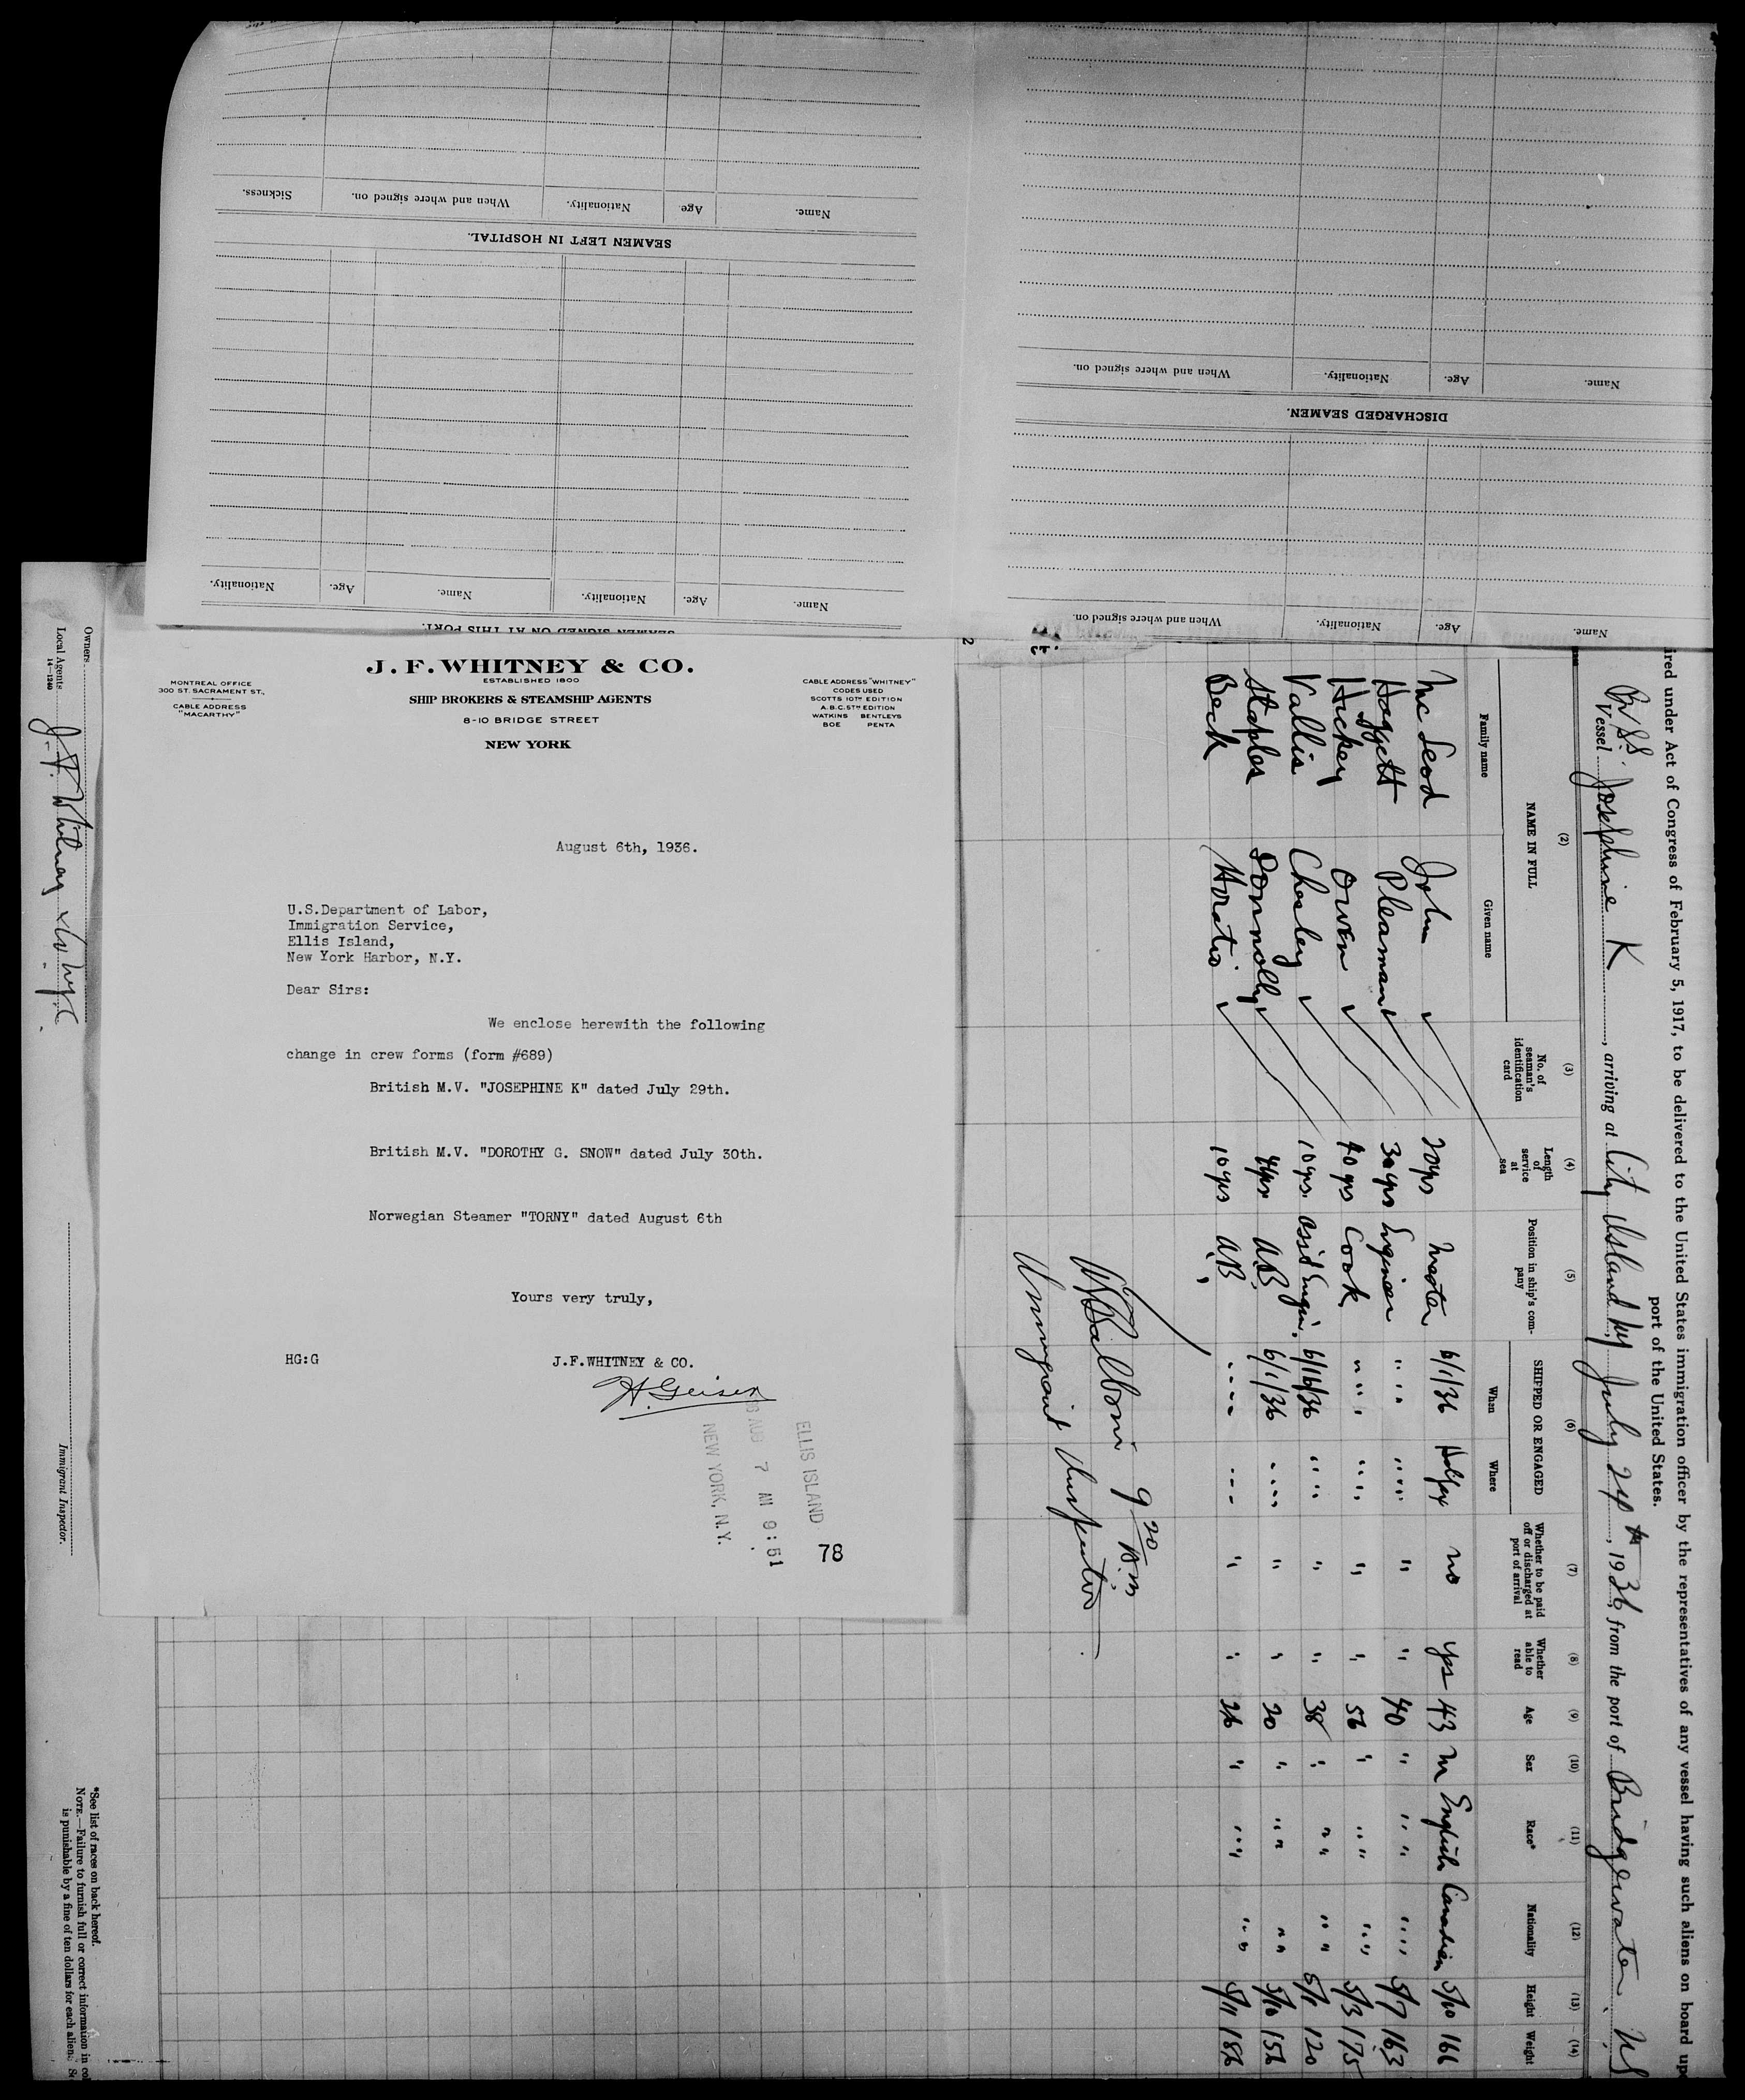 Sickness.
When and where signed on.
Nationality.
Age.
Name.
SEAMEN LEFT IN HOSPITAL.
Nationality.
Age.
Name.
Nationality.
Age.
Name.
SEAMEN SIGNED ON AT THIS PORT.
When and where signed on.
Nationality.
Age.
Name.
DISCHARGED SEAMEN.
When and where signed on.
Nationality.
Age.
Name.
J. F. WHITNEY & CO.
ESTABLISHED 1800
SHIP BROKERS & STEAMSHIP AGENTS
8-10 BRIDGE STREET
NEW YORK
MONTREAL OFFICE
300 ST. SACRAMENT ST.,
CABLE ADDRESS
"MACARTHY"
CABLE ADDRESS "WHITNEY"
CODES USED
SCOTTS 10TH EDITION
A.B.C. 5TH EDITION
WATKINS BENTLEYS
BOE PENTA
August 6th, 1936.
U.S.Department of Labor,
Immigration Service,
Ellis Island,
New York Harbor, N.Y.
Dear Sirs:
We enclose herewith the following
change in crew forms (form #689)
British M.V. "JOSEPHINE K" dated July 29th.
British M.V. "DOROTHY G. SNOW" dated July 30th.
Norwegian Steamer "TORNY" dated August 6th
Yours very truly,
HG:G
J.F.WHITNEY & CO.
H. Geisen
ELLIS ISLAND
AUG 7 AM 9:51
NEW YORK, N.Y.
78
ired under Act of Congress of February 5, 1917, to be delivered to the United States immigration officer by the representatives of any vessel having such aliens on board up
port of the United States.
Vessel Josephine K, arriving at City Island NY July 24th, 1936, from the port of Bridgewater, NS
(2) (3) (4) (5) (6) (7) (8) (9) (10) (11) (12) (13) (14)
NAME IN FULL
Family name
Given name
No. of seaman's identification card
Length of service at sea
Position in ship's company
SHIPPED OR ENGAGED
When
Where
Whether to be paid off or discharged at port of arrival
Whether able to read
Age
Sex
Race*
Nationality
Height
Weight
Mc Leod John ✓ 20 yrs Master 6/1/36 Halifax no yes 43 M English Canadian 5/10 166
Hoggett Pleaman ✓ 30 yrs Engineer " " " " " " 40 " " " " " 5/7 163
Hickey Owen ✓ 40 yrs Cook " " " " " " 56 " " " " " 5/3 175
Vallis Chesley ✓ 10 yrs. Assid Engin. 6/16/36 " " " " 38 " " " " " 5/11 120
Staples Donnolly ✓ 4 yrs. A.B. 6/1/36 " " " " 20 " " " " " 5/10 156
Beck Horatio ✓ 10 yrs A.B. " " " " " " 26 " " " " " 5/11 186
9 20 A.M
Immigrant Inspector
Owners
Local Agents J. F. Whitney & Co. N.Y.C.
14—1240
Immigrant Inspector.
*See list of races on back hereof.
NOTE.—Failure to furnish full or correct information in
is punishable by a fine of ten dollars for each alien.